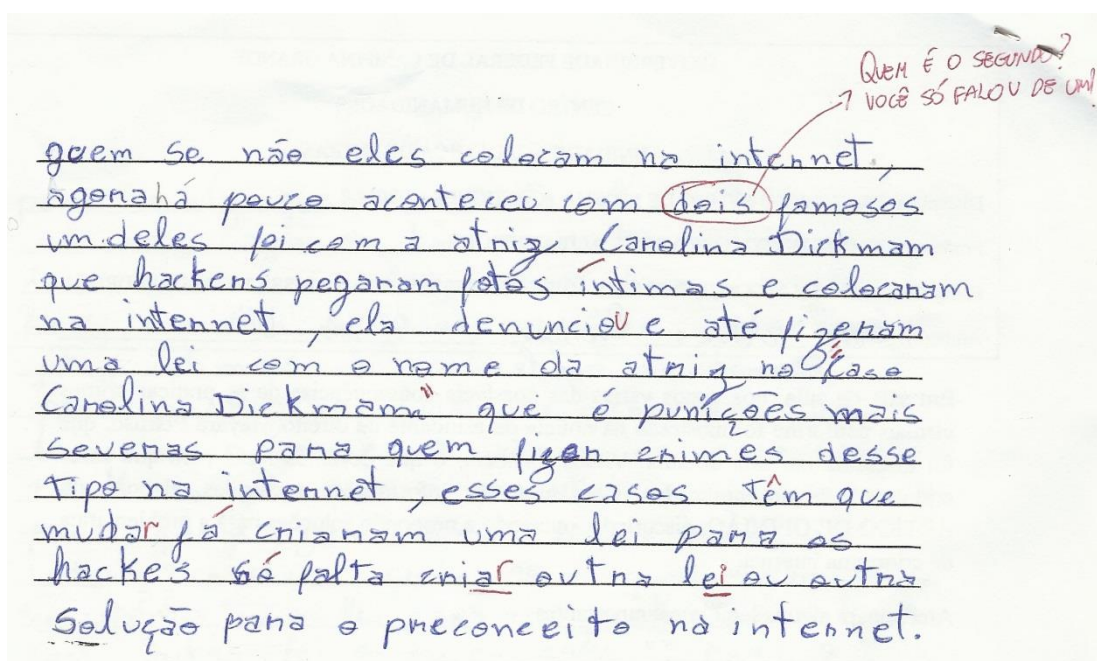 QUEM É O SEGUNDO?
VOCÊ SÓ FALOU DE UM!
quem se não eles colocam na internet,
agora há pouco aconteceu com dois famosos
um deles foi com a atriz Carolina Dickmam
que hackers pegaram fotos íntimas e colocaram
na internet, ela denunciou e até fizeram
uma lei com o nome da atriz no "caso
Carolina Dickmam" que é punições mais
severas para quem fizer crimes desse
tipo na internet, esses casos têm que
mudar já criaram uma lei para os
hackes só falta criar outra lei ou outra
solução para o preconceito na internet.